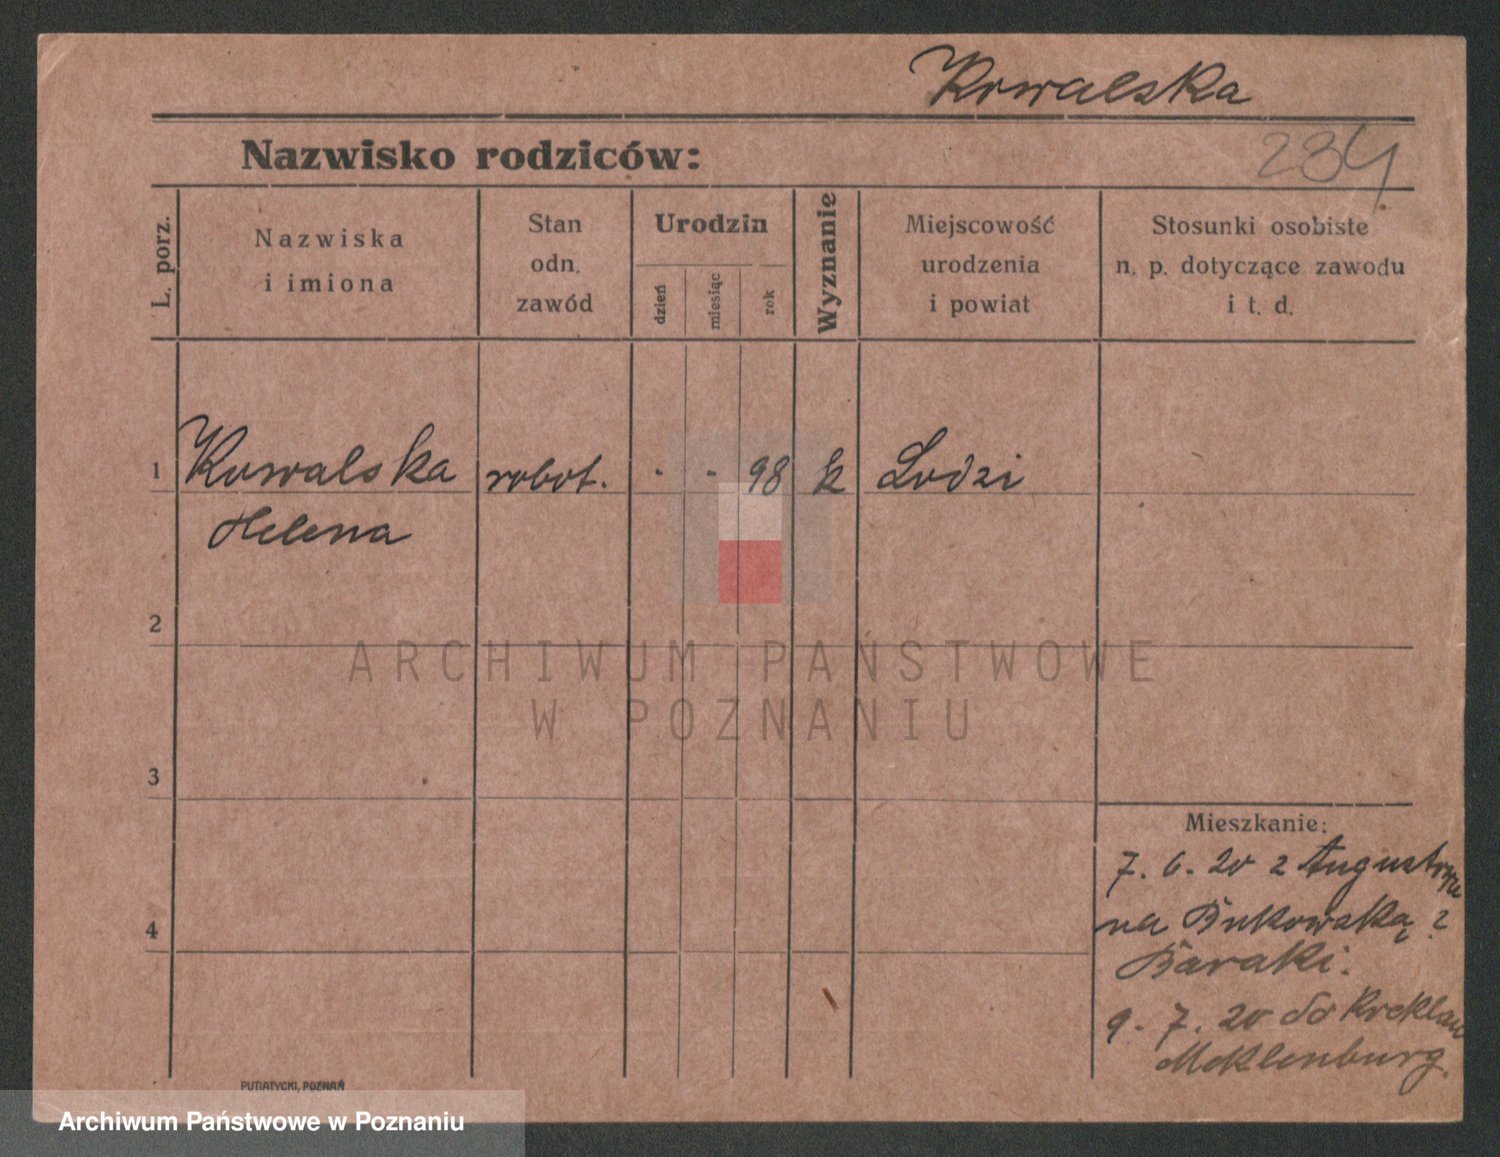 Kowalska
234
Nazwisko rodziców:
L. porz.
Nazwiska
i imiona
Stan
odn.
zawód
Urodzin
dzień
miesiąc
rok
Wyznanie
Miejscowość
urodzenia
i powiat
Stosunki osobiste
n. p. dotyczące zawodu
i t. d.
1 Kowalska robot. - - 98 k Lodzi
Helena
2
ARCHIWUM PAŃSTWOWE
W POZNANIU
3
Mieszkanie:
7. 6. 20 z
4
na Bukowską 2
Baraki.
9. 7. 20 do
Meklenburg.
PUTIATYCKI, POZNAŃ
Archiwum Państwowe w Poznaniu